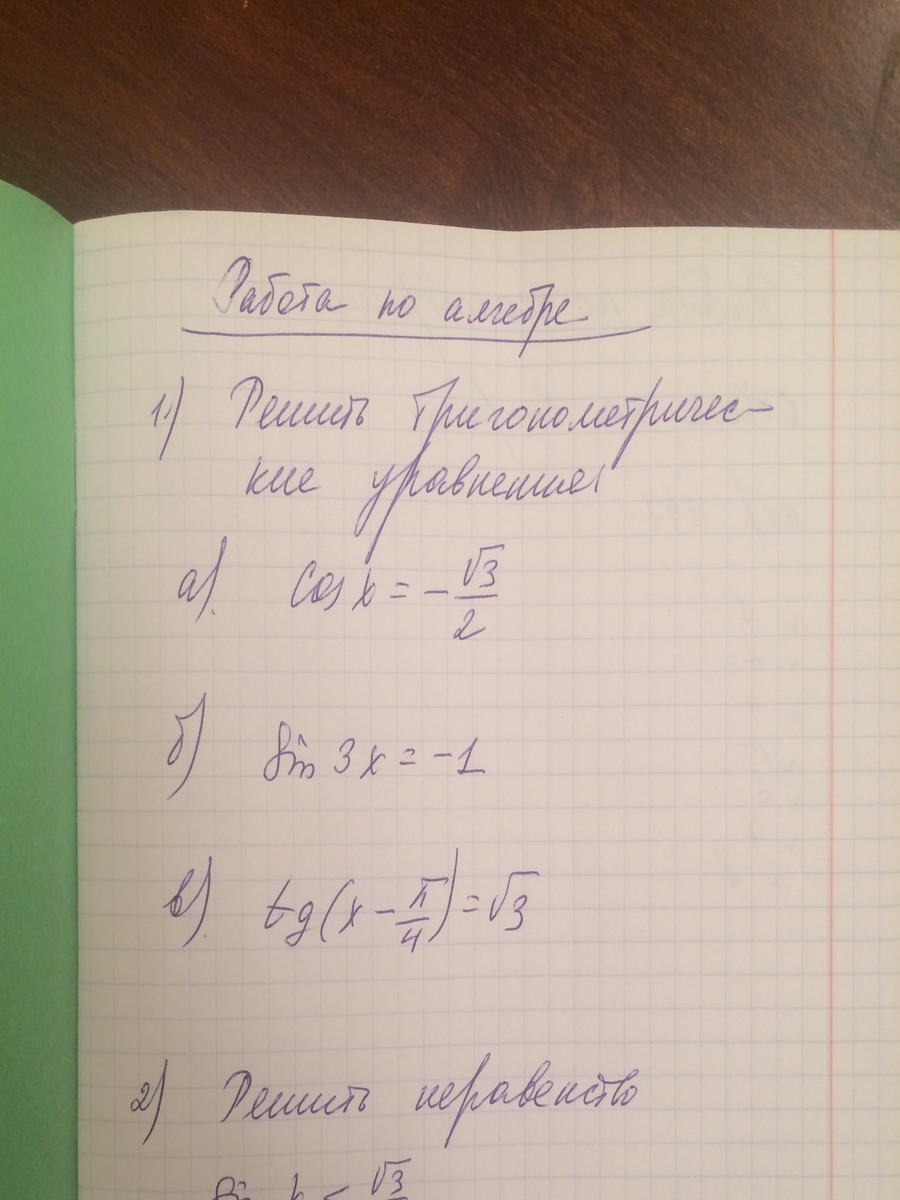 Работа по алгебре
1.) Решить тригонометричес-
кие уравнения
а). cos x = -√3/2
б) sin 3x = -1
в). tg(x - π/4) = √3
2) Решить неравенство